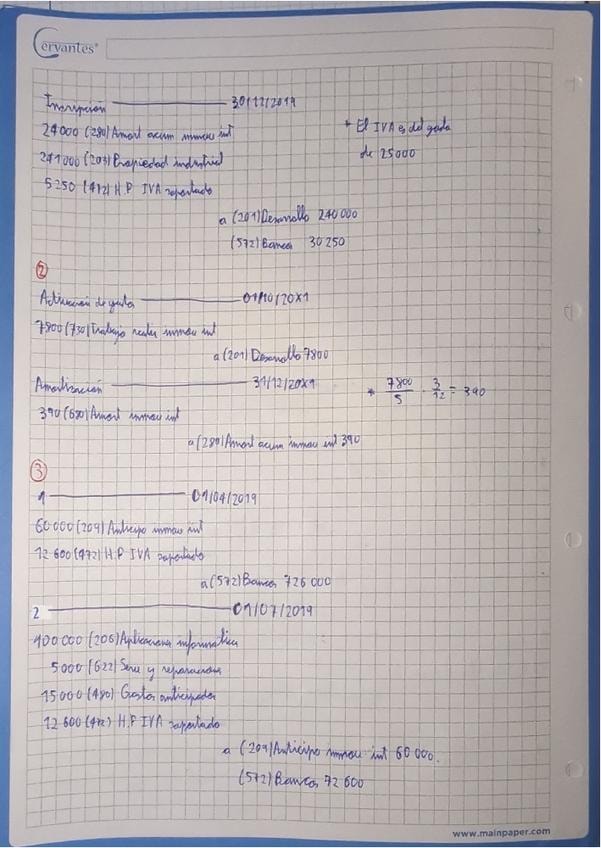 Cervantes®
Inscripción 30/12/2019
24000 (280) Amort acum inmov int
* El IVA es del gasto
de 25000
241000 (203) Propiedad industrial
5250 (472) H.P IVA soportado
a (201) Desarrollo 240000
(572) Bancos 30250
2
Activación de gasto 01/10/20X1
7800 (730) Trabajo realiz inmov int
a (201) Desarrollo 7800
Amortización 31/12/20X1
* 7800/5 · 3/12 = 390
390 (680) Amort inmov int
a (280) Amort acum inmov int 390
3
1 01/04/2019
60000 (209) Anticipo inmov int
12600 (472) H.P IVA soportado
a (572) Bancos 726000
2 01/07/2019
100000 (206) Aplicaciones informática
5000 (622) Serv y reparaciones
15000 (480) Gastos anticipados
12600 (472) H.P IVA soportado
a (209) Anticipo inmov int 60000.
(572) Bancos 72600
www.mainpaper.com